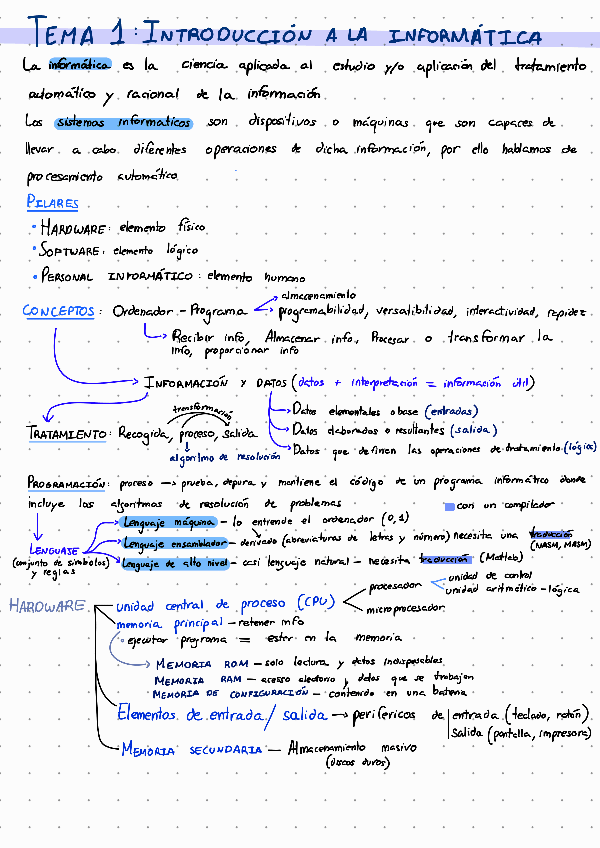 TEMA 1: INTRODUCCIÓN A LA INFORMÁTICA
La informática es la ciencia aplicada al estudio y/o aplicación del tratamiento
automático y racional de la información.
Los sistemas informaticos son dispositivos o máquinas que son capaces de
llevar a cabo diferentes operaciones de dicha información, por ello hablamos de
procesamiento automático.
PILARES
• HARDWARE: elemento físico
• SOFTWARE: elemento lógico
• PERSONAL INFORMÁTICO: elemento humano
almacenamiento
CONCEPTOS: Ordenador - Programa → programabilidad, versatibilidad, interactividad, rapidez
Recibir info, Almacenar info, Procesar o transformar la
info, proporcionar info
INFORMACIÓN Y DATOS (datos + interpretación = información útil)
transformación
Datos elementales o base (entradas)
TRATAMIENTO: Recogida, proceso, salida
Datos elaborados o resultantes (salida)
algoritmo de resolución
Datos que definen las operaciones de tratamiento (lógica)
PROGRAMACIÓN: proceso → prueba, depura y mantiene el código de un programa informático donde
incluye los algoritmos de resolución de problemas
con un compilador
LENGUAJE
(conjunto de símbolos
y reglas)
Lenguaje máquina - lo entiende el ordenador (0,1)
Lenguaje ensamblador - derivado (abreviaturas de letras y número) necesita una traducción
(NASM, MASM)
Lenguaje de alto nivel - casi lenguaje natural - necesita traducción (Matlab)
HARDWARE
unidad central de proceso (CPU)
procesador
unidad de control
unidad aritmético-lógica
microprocesador
memoria principal - retener info
• ejecutar programa = estar en la memoria
MEMORIA ROM - solo lectura y datos indispensables
MEMORIA RAM - acceso aleatorio y datos que se trabajan
MEMORIA DE CONFIGURACIÓN - contenido en una batería
Elementos de entrada/salida → periféricos de
entrada (teclado, ratón)
salida (pantalla, impresora)
MEMORIA SECUNDARIA - Almacenamiento masivo
(discos duros)